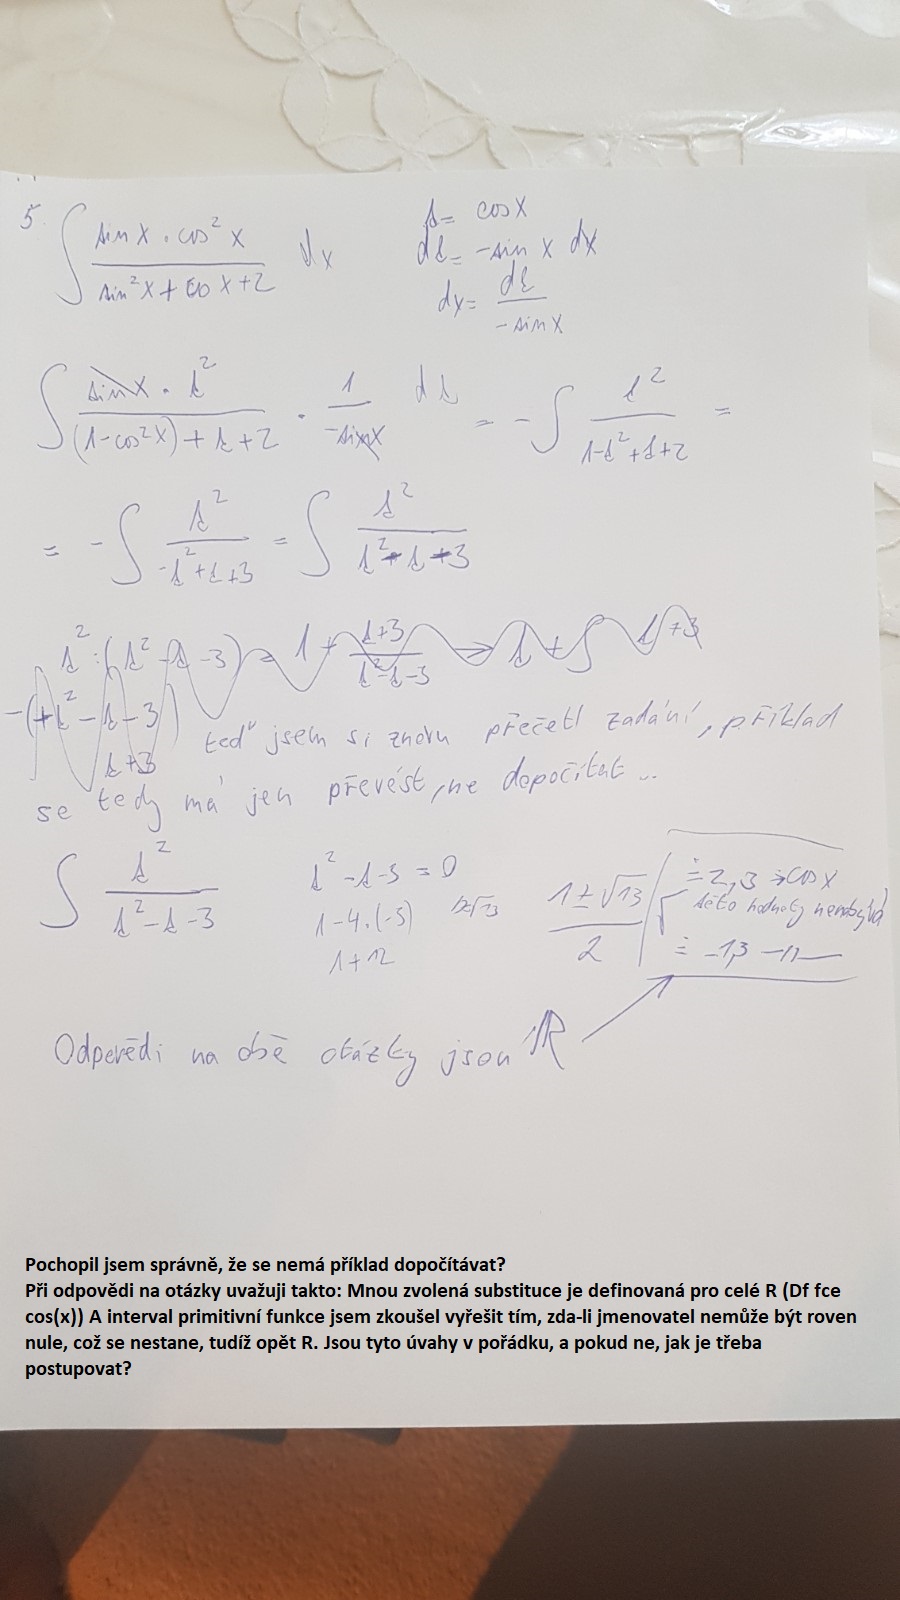 5. ∫ (sin x · cos² x)/(sin² x + cos x + 2) dx
t = cos x
dt = -sin x dx
dx = dt/(-sin x)
∫ (sin x · t²)/((1-cos² x) + t + 2) · 1/(-sin x) dt = -∫ t²/(1-t²+t+2) =
= -∫ t²/(-t²+t+3) = ∫ t²/(t²-t-3)
t² : (t² - t - 3) = 1 + (t+3)/(t²-t-3) → t + ∫ t+3
-(+t² - t - 3)
t+3
teď jsem si znovu přečetl zadání, příklad
se tedy má jen převést, ne dopočítat...
∫ t²/(t²-t-3)
t² - t - 3 = 0
1-4·(-3)
1+12
(1±√13)/2
≐ 2,3 → cos x
této hodnoty nenabývá
≐ -1,3 —11—
Odpovědi na obě otázky jsou ℝ
Pochopil jsem správně, že se nemá příklad dopočítávat?
Při odpovědi na otázky uvažuji takto: Mnou zvolená substituce je definovaná pro celé R (Df fce
cos(x)) A interval primitivní funkce jsem zkoušel vyřešit tím, zda-li jmenovatel nemůže být roven
nule, což se nestane, tudíž opět R. Jsou tyto úvahy v pořádku, a pokud ne, jak je třeba
postupovat?